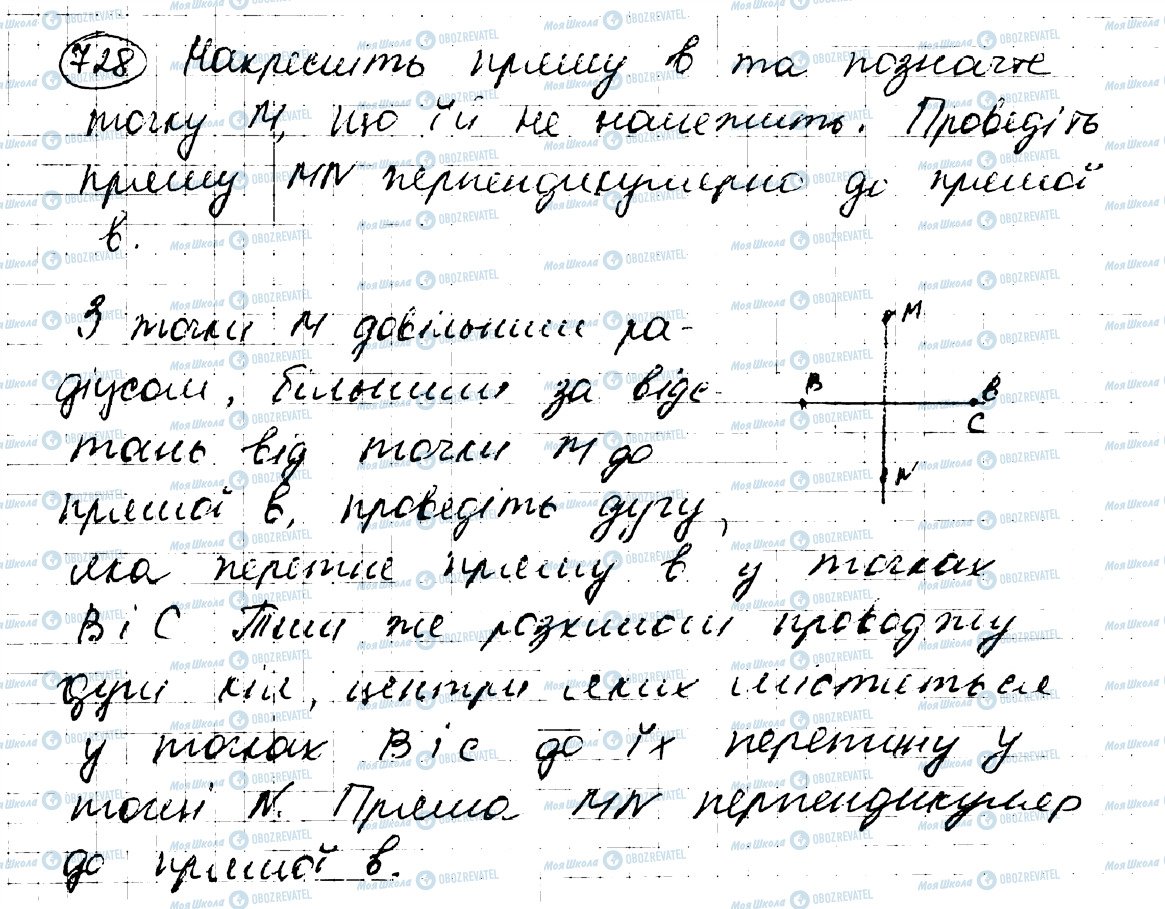 728 Накресліть пряму в та позначте
точку М, що їй не належить. Проведіть
пряму МN перпендикулярно до прямої
в.
З точки М довільним ра-
діусом, більшим за відс-
тань від точки М до
прямої в, проведіть дугу,
яка перетне пряму в у точках
В і С Тим же розхилом проводжу
дуги кіл, центри яких містяться
у точках В і С до їх перетину у
точці N. Пряма МN перпендикуляр
до прямої в.
М
В в
С
N
МояШкола OBOZREVATEL